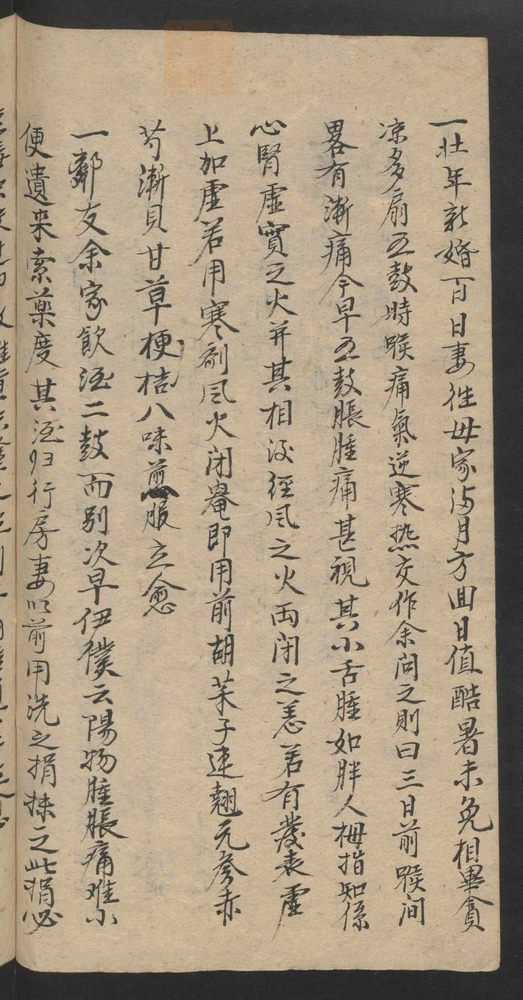 一壮年新婚百日妻往母家满月方回日值酷暑未免相畢貪
凉多扇五鼓時喉痛氣逆寒热交作余问之則曰三日前喉间
畧有漸痛今早五鼓脹腫痛甚視其小舌腫如胖人拇指知係
心腎虚實之火并其相法經風之火両闭之恙若有發表虚
上加虚若用寒剂风火闭奄即用前胡茱子連翹元參赤
芍漸貝甘草梗桔八味煎服立愈
一鄰友余家飲酒二鼓而别次早伊僕云陽物腫脹痛难小
便遺来索藥度其酒归行房妻以前用洗之捐抹之此捐必